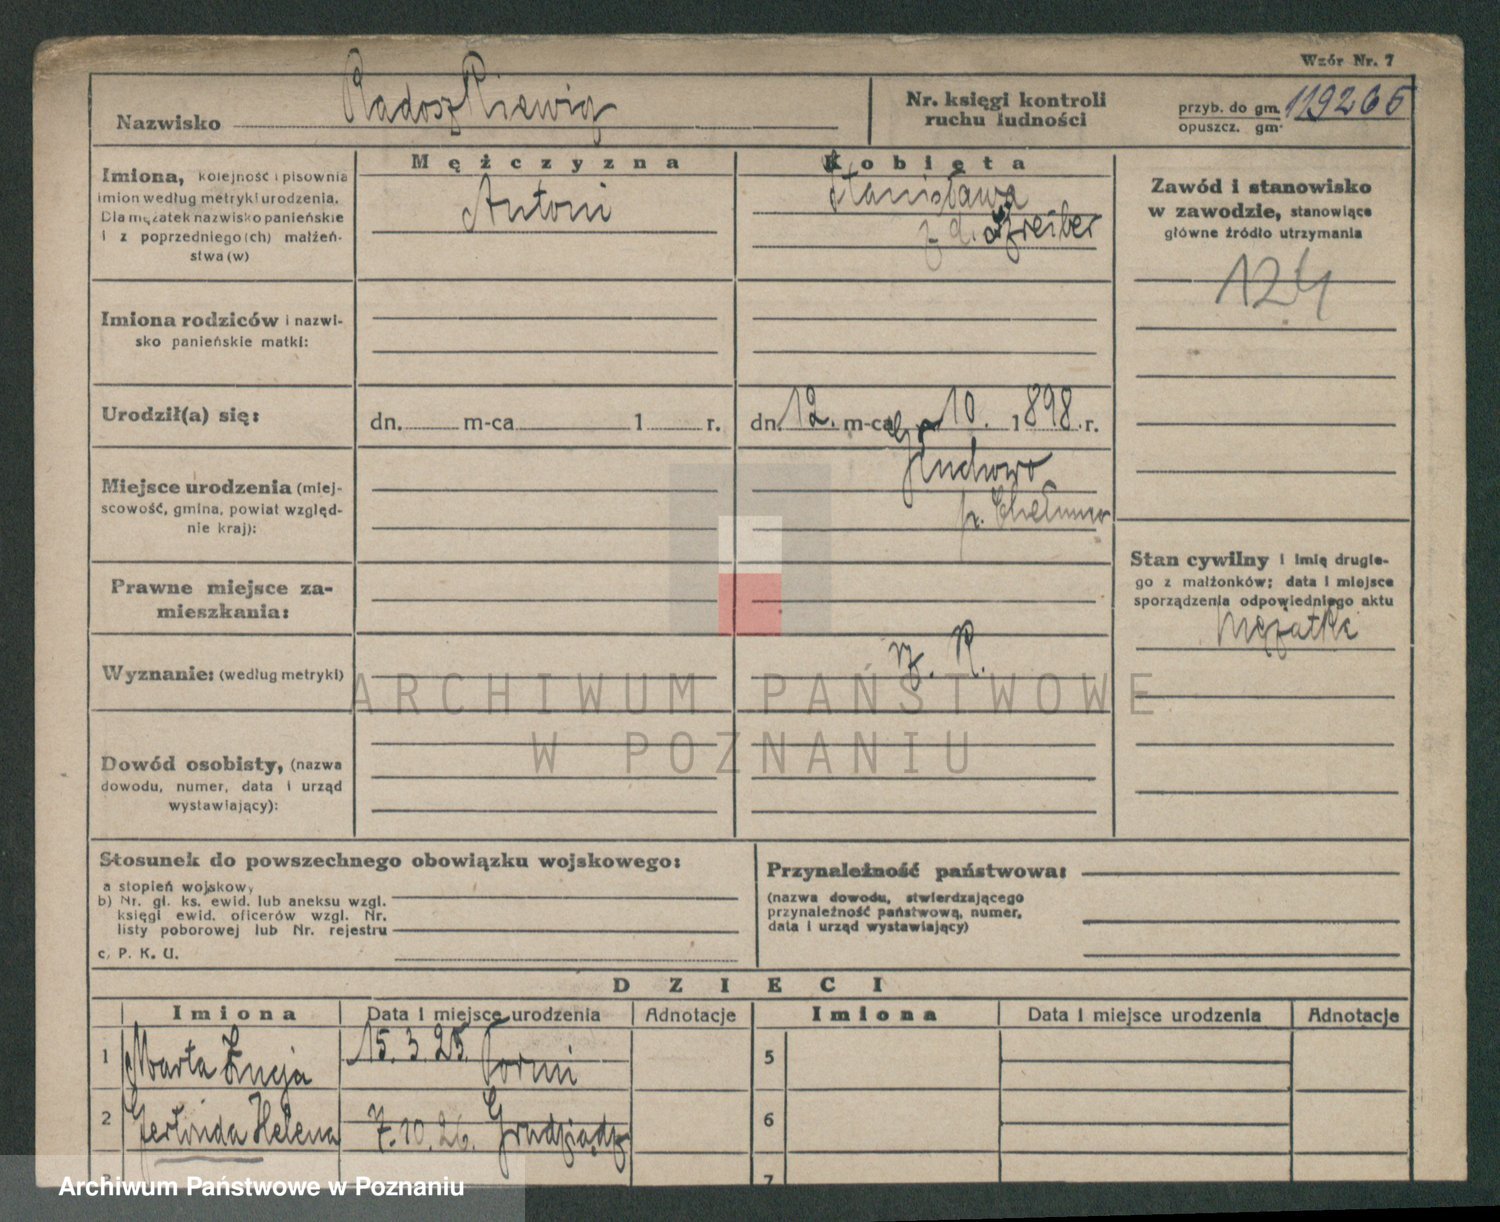 Wzór Nr. 7
Nazwisko Radoszkiewicz
Nr. księgi kontroli
ruchu ludności
przyb. do gm. 119265
opuszcz. gm.
Mężczyzna
Kobieta
Imiona, kolejność i pisownia
imion według metryki urodzenia.
Dla mężatek nazwisko panieńskie
i z poprzedniego(ch) małżeń-
stwa(w)
Antoni
Stanisława
z d. Szreiber
Zawód i stanowisko
w zawodzie, stanowiące
główne źródło utrzymania
124
Imiona rodziców i nazwi-
sko panieńskie matki:
Urodził(a) się:
dn. m-ca 1 r.
dn. 12. m-ca 10. 1898. r.
Miejsce urodzenia (miej-
scowość, gmina, powiat względ-
nie kraj):
Głuchowo
p. Chełmno
Prawne miejsce za-
mieszkania:
Stan cywilny i imię drugie-
go z małżonków; data i miejsce
sporządzenia odpowiedniego aktu
mężatka
Wyznanie: (według metryki)
rz. K.
Dowód osobisty, (nazwa
dowodu, numer, data i urząd
wystawiający):
ARCHIWUM PAŃSTWOWE
W POZNANIU
Stosunek do powszechnego obowiązku wojskowego:
a stopień wojskowy
b) Nr. gł. ks. ewid. lub aneksu wzgl.
księgi ewid. oficerów wzgl. Nr.
listy poborowej lub Nr. rejestru
c, P. K. U.
Przynależność państwowa:
(nazwa dowodu, stwierdzającego
przynależność państwową, numer,
data i urząd wystawiający)
DZIECI
Imiona Data i miejsce urodzenia Adnotacje Imiona Data i miejsce urodzenia Adnotacje
1 Marta Łucja 15. 3. 25. Toruń 5
2 Helena 7. 10. 26. Grudziądz 6
3 7
Archiwum Państwowe w Poznaniu